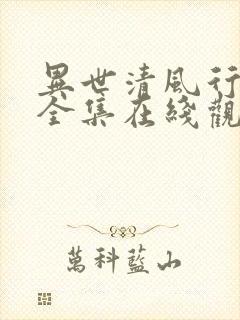 異世清風行
全集在綫觀
萬科藍山